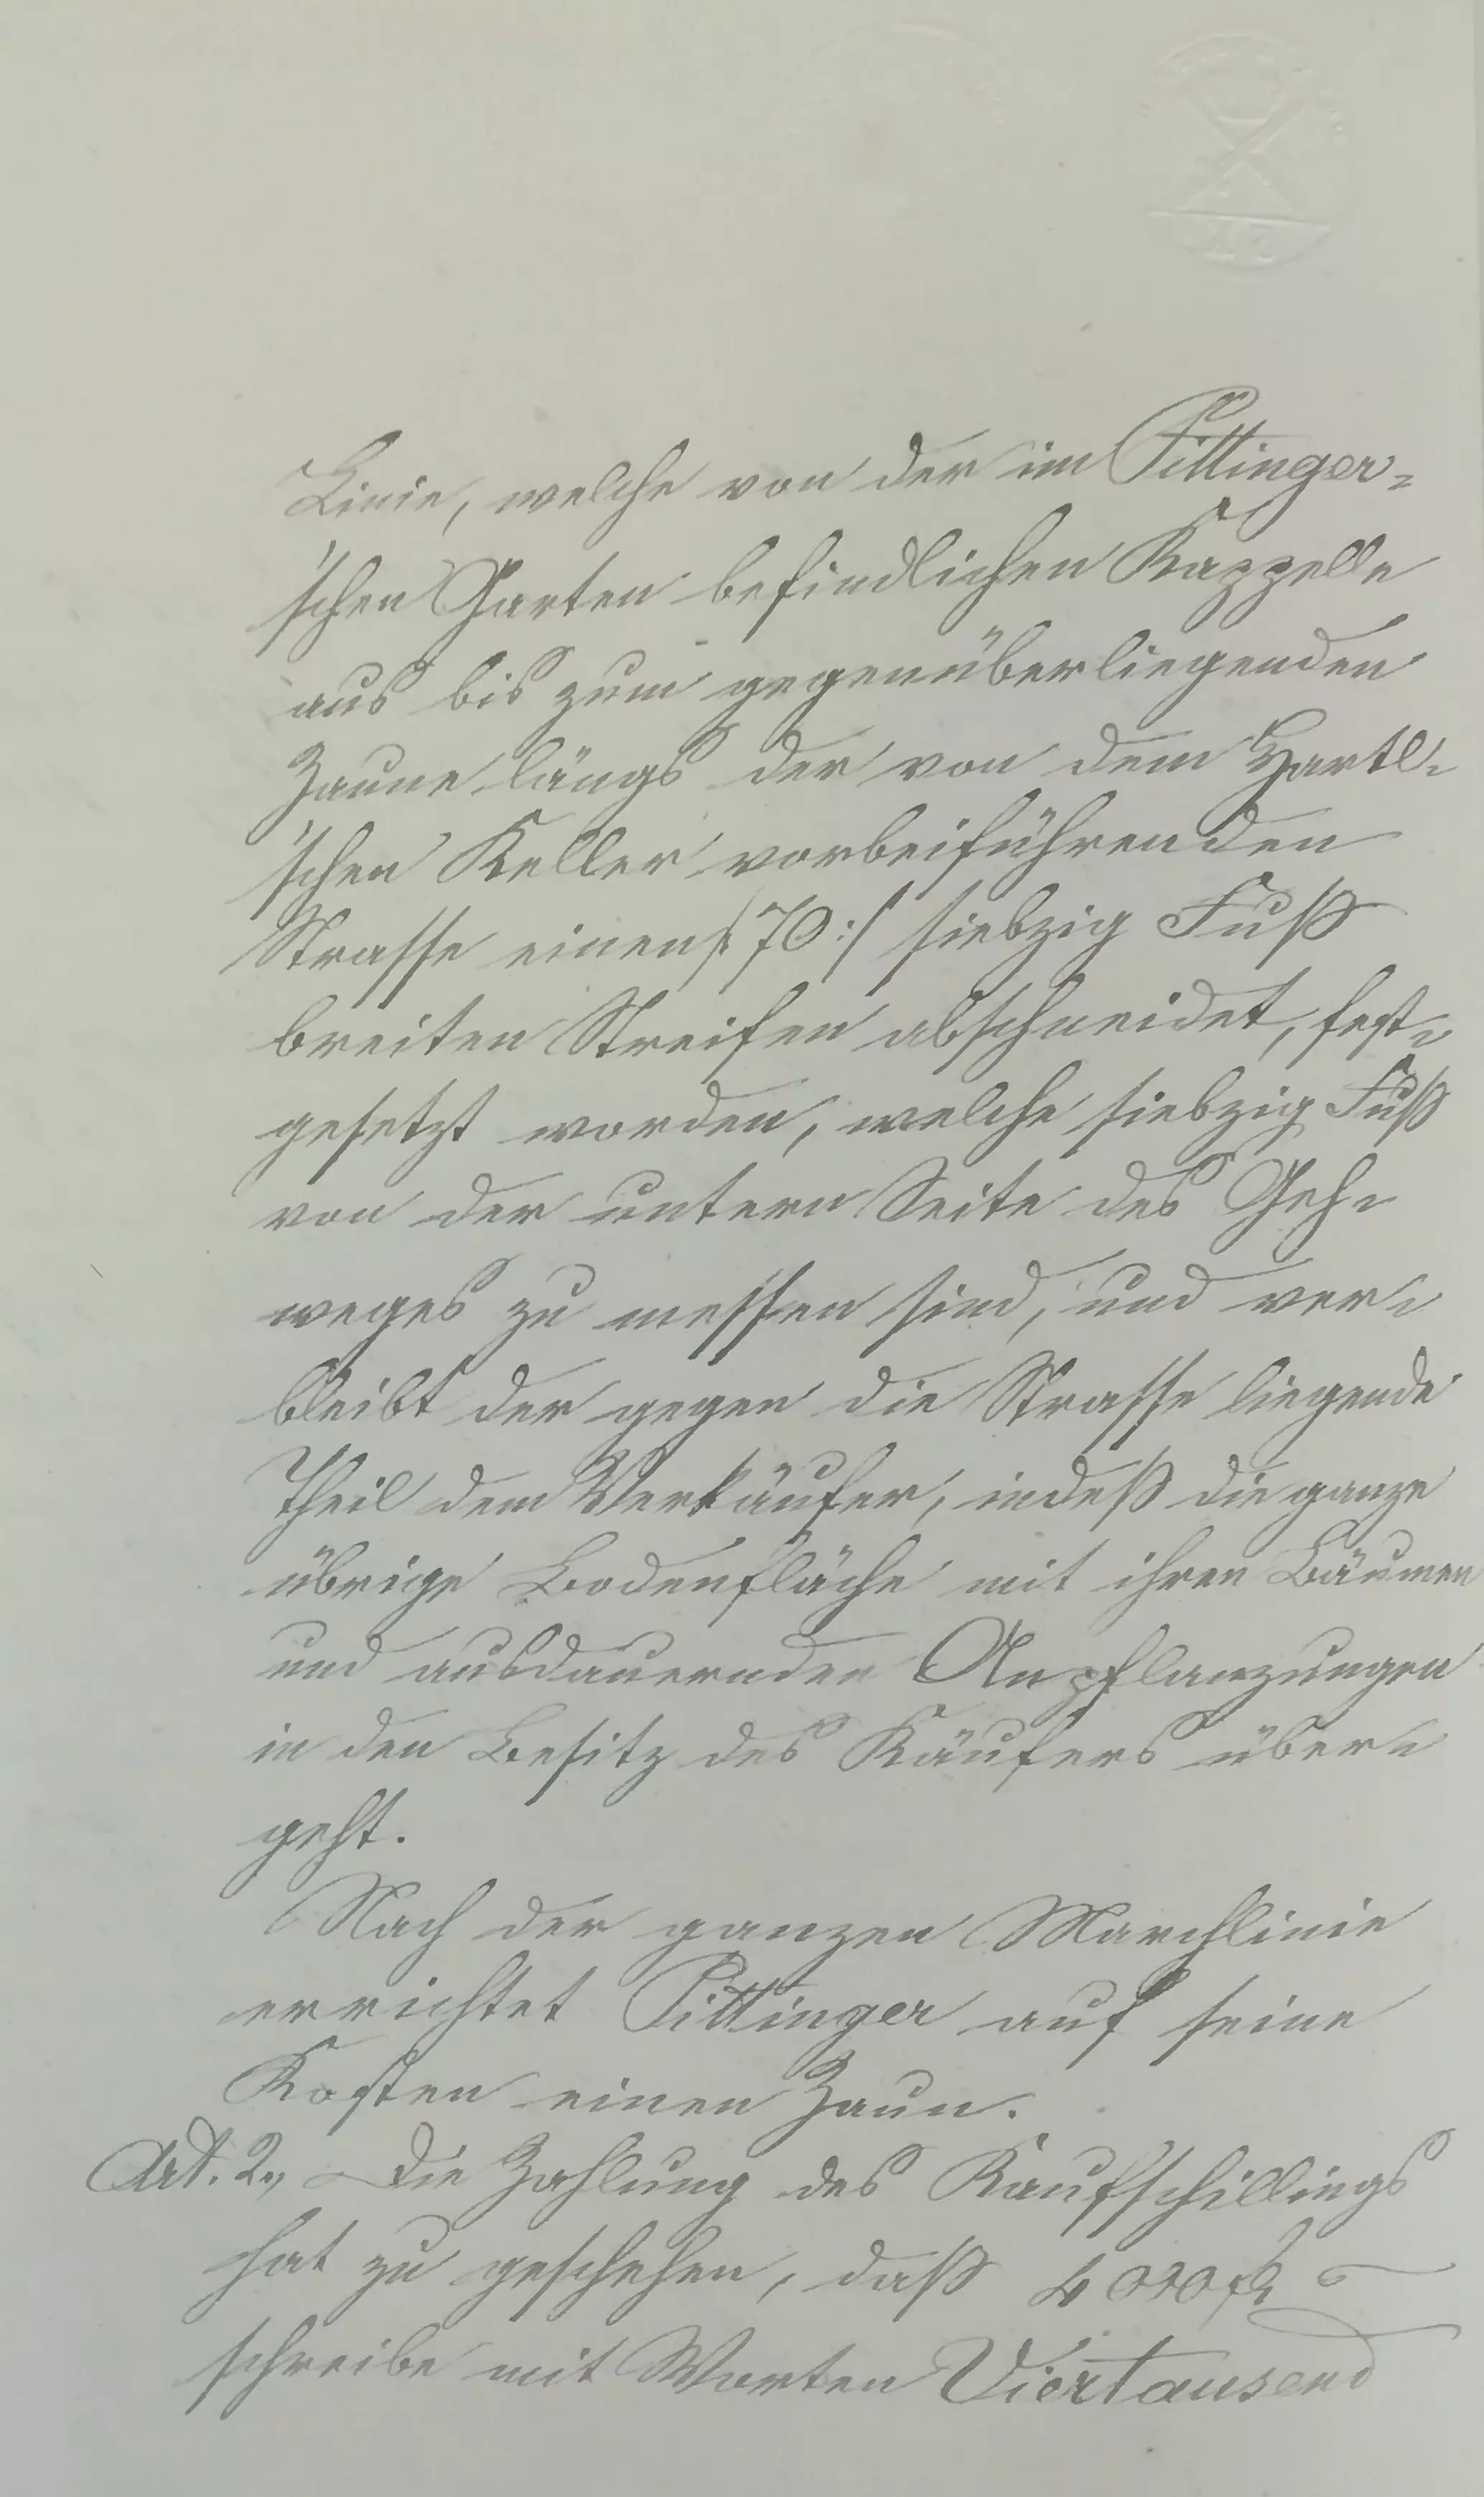 Linie, welche von der im Pittinger-
'schen Garten befindlichen Kappelle
aus bis zum gegenüberliegenden
Zaune längs der von dem Hartl-
'schen Keller vorbeiführenden
Strasse einen /: 70 :/ siebzig Fuß
breiten Streifen abschneidet, fest-
gesetzt worden, welche siebzig Fuß
von der untern Seite des Geh-
weges zu messen sind, und ver-
bleibt der gegen die Strasse liegende
Theil dem Verkäufer, indeß die ganze
übrige Bodenfläche mit ihren Bäumen
und ausdauernden Anpflanzungen
in den Besitz des Käufers über-
geht.
Nach der ganzen Marchlinie
errichtet Pittinger auf seine
Kosten einen Zaun.
Art. 2., Die Zahlung des Kaufschillings
hat zu geschehen, daß 4000 fl
schreibe mit Worten Viertausend